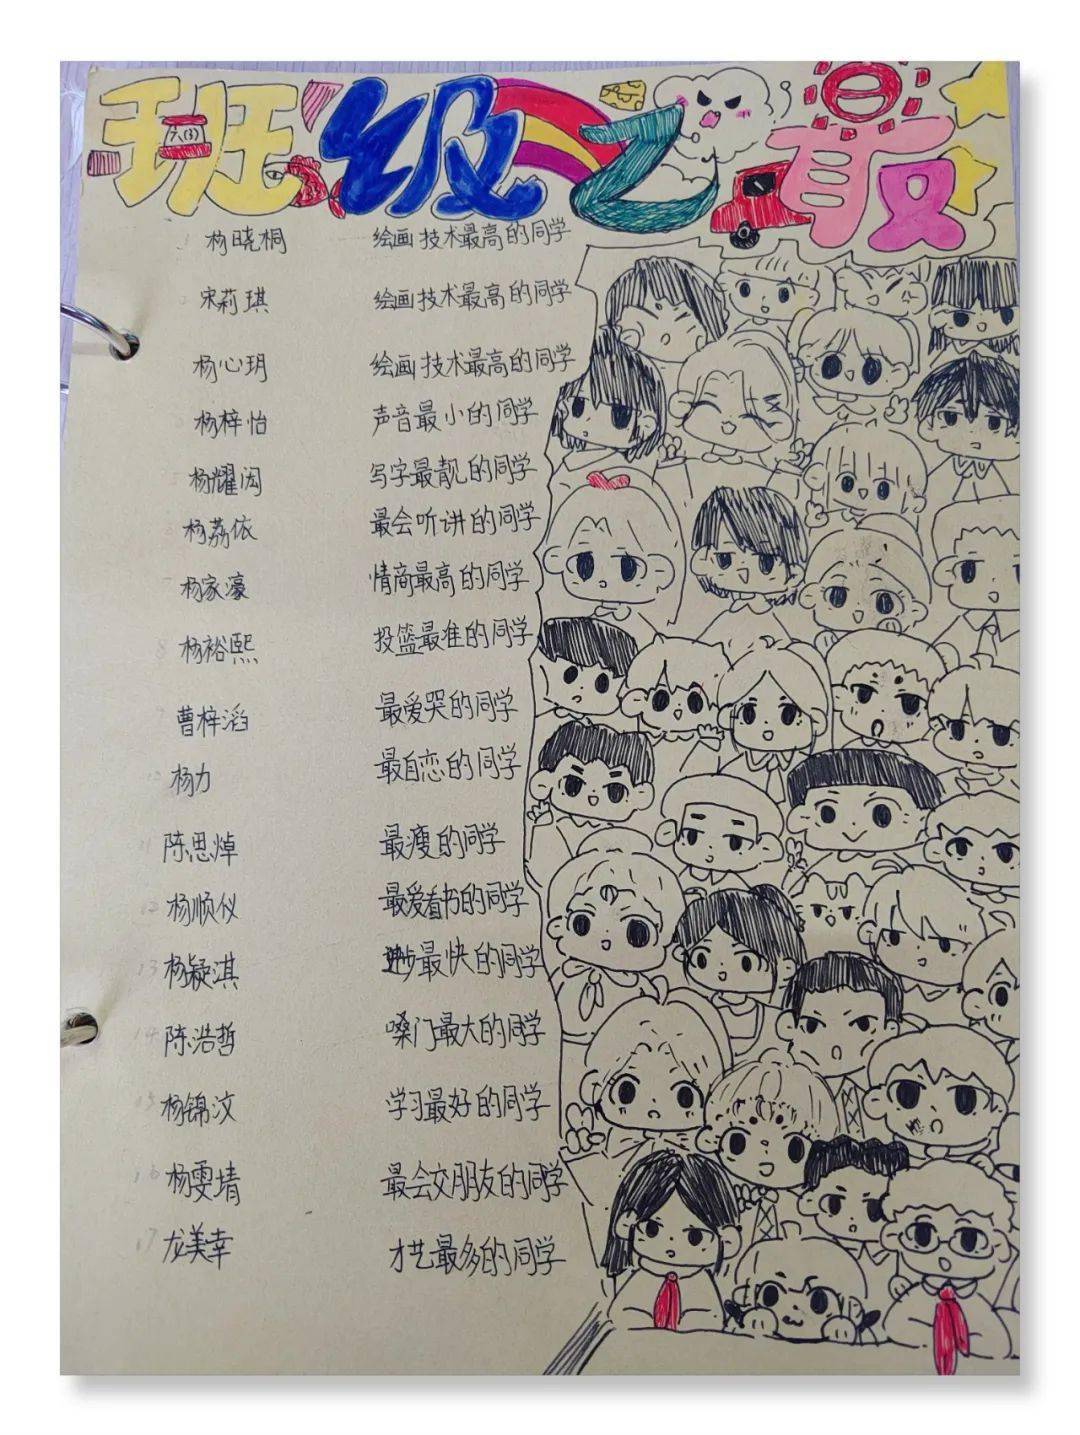 班级之最
杨晓桐 绘画技术最高的同学
宋莉琪 绘画技术最高的同学
杨心玥 绘画技术最高的同学
杨梓怡 声音最小的同学
杨耀闳 写字最靓的同学
杨荔依 最会听讲的同学
杨家濠 情商最高的同学
8 杨裕熙 投篮最准的同学
曹梓滔 最爱哭的同学
杨力 最自恋的同学
11 陈思焯 最瘦的同学
12 杨顺仪 最爱看书的同学
13 杨颖淇 进步最快的同学
14 陈浩哲 嗓门最大的同学
15 杨锦汶 学习最好的同学
16 杨雯婧 最会交朋友的同学
17 龙美幸 才艺最多的同学